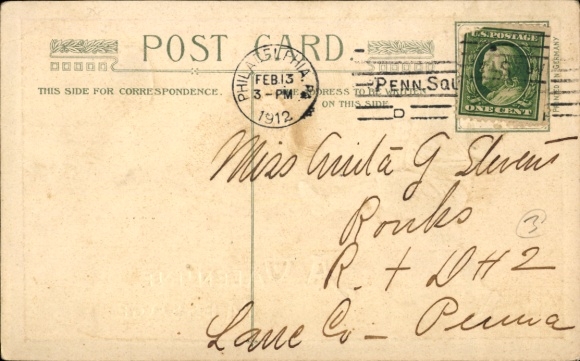 POST CARD
THIS SIDE FOR CORRESPONDENCE.
ADDRESS TO BE
ON THIS SIDE.
PHILADELPHIA, PA.
FEB. 13
3 - PM
1912
PENN. SQ
D
U.S. POSTAGE
ONE CENT
IN GERMANY
Miss Anita G Stevens
Ronks
3
R. + D # 2
Lanc Co - Penna